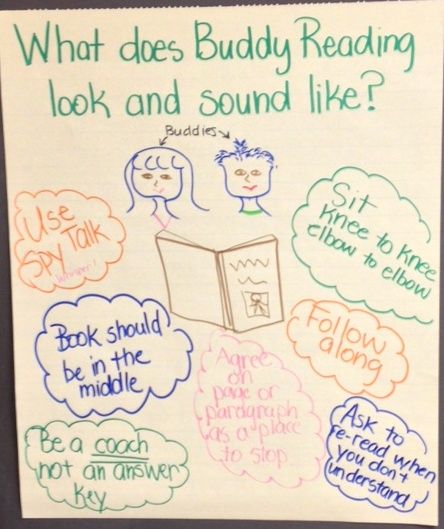 What does Buddy Reading
look and sound like?
Buddies
Use
Spy Talk
whisper!
Sit
knee to knee
elbow to elbow
Book should
be in the
middle
Follow
along
Agree
on
page or
paragraph
as a place
to stop
Be a coach
not an answer
key
Ask to
re-read when
you don't
understand